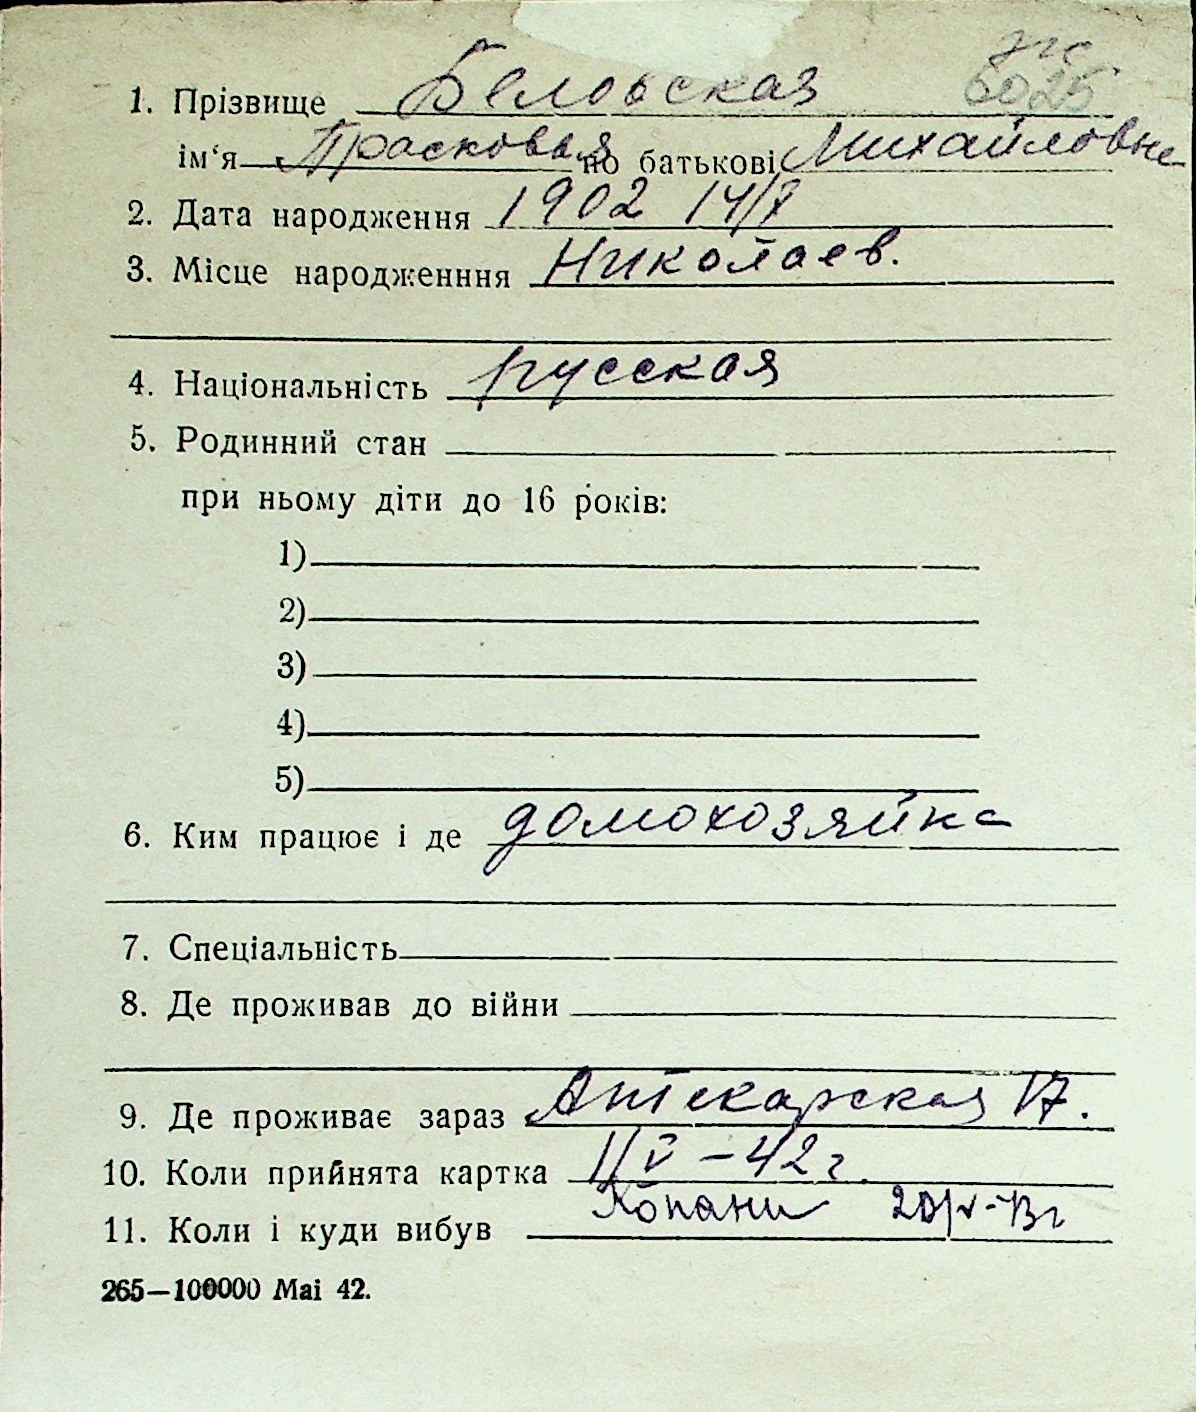 жс
6025
1. Прізвище Беловская
ім‘я Прасковья по батькові Михайловне
2. Дата народження 1902 14/7
3. Місце народженння Николаев.
4. Національність русская
5. Родинний стан
при ньому діти до 16 років:
1)
2)
3)
4)
5)
6. Ким працює і де домохозяйка
7. Спеціальність
8. Де проживав до війни
9. Де проживає зараз Аптекарская 17.
10. Коли прийнята картка 11/V – 42 г.
11. Коли і куди вибув Копани 20/V-43г
265—100000 Mai 42.